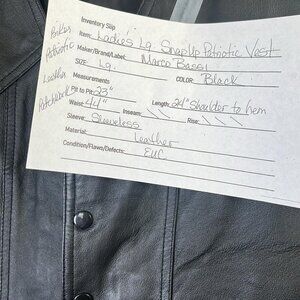 Inventory Slip
Item: Ladies Lg. Snap Up Patriotic Vest
Maker/Brand/Label: Marco Bassi
SIZE: Lg. COLOR: Black
Measurements
Pit to Pit: 23" Length: 24" Shoulder to hem
Waist: 44" Inseam: \ Rise: \
Sleeve: Sleeveless
Material: Leather
Condition/Flaws/Defects: EUC
Biker
Patriotic
Leather
Patchwork